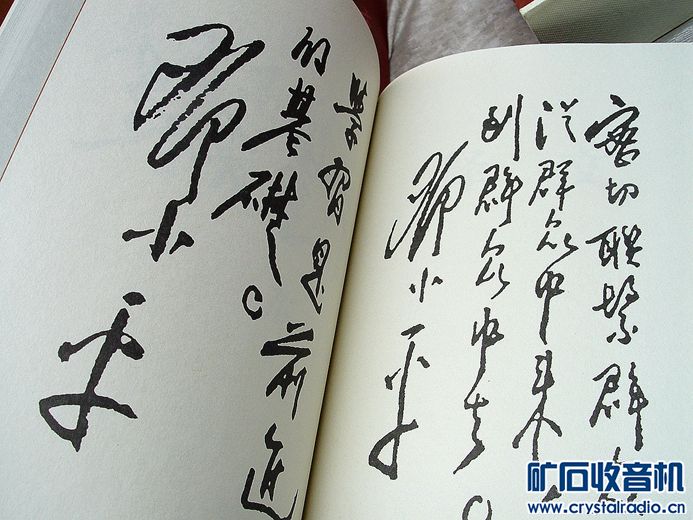 密切聯繫群众
從群众中来
到群众中去。
邓小平
學習是前進
的基礎。
邓小平
矿石收音机
www.crystalradio.cn